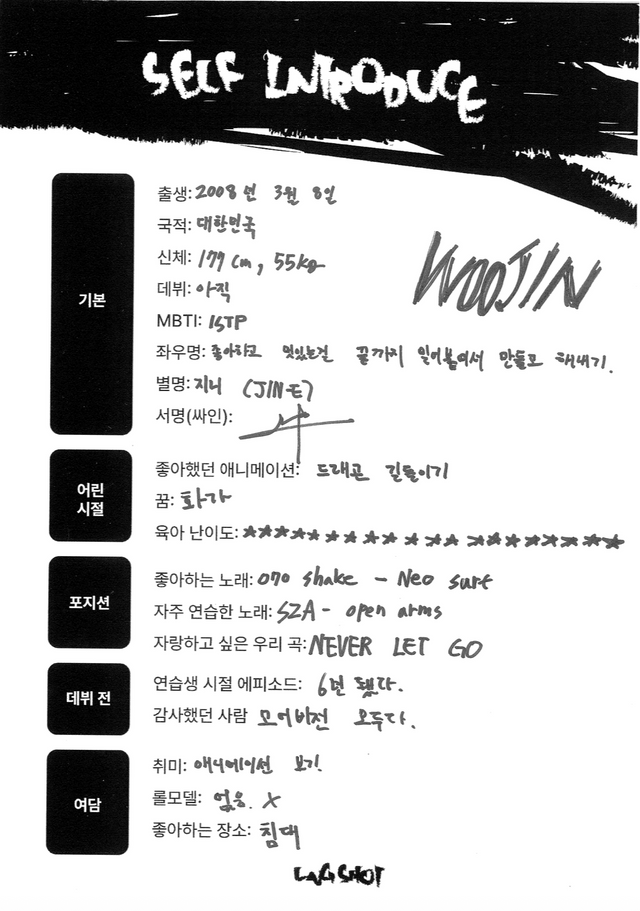 SELF INTRODUCE
기본
출생: 2008년 3월 8일
국적: 대한민국
신체: 177cm, 55kg
데뷔: 아직
MBTI: ISTP
좌우명: 좋아하고 멋있는건 끝까지 밀어붙여서 만들고 해내기.
별명: 지니 (JINE)
서명(싸인):
WOOJIN
어린
시절
좋아했던 애니메이션: 드래곤 길들이기
꿈: 화가
육아 난이도: ★★★★★★★★★★★★★★★★★★★★★
포지션
좋아하는 노래: 070 shake - Neo surf
자주 연습한 노래: SZA - open arms
자랑하고 싶은 우리 곡: NEVER LET GO
데뷔 전
연습생 시절 에피소드: 6년 됐다.
감사했던 사람 모어비전 모두다.
여담
취미: 애니메이션 보기!
롤모델: 없음. X
좋아하는 장소: 침대
LNGSHOT